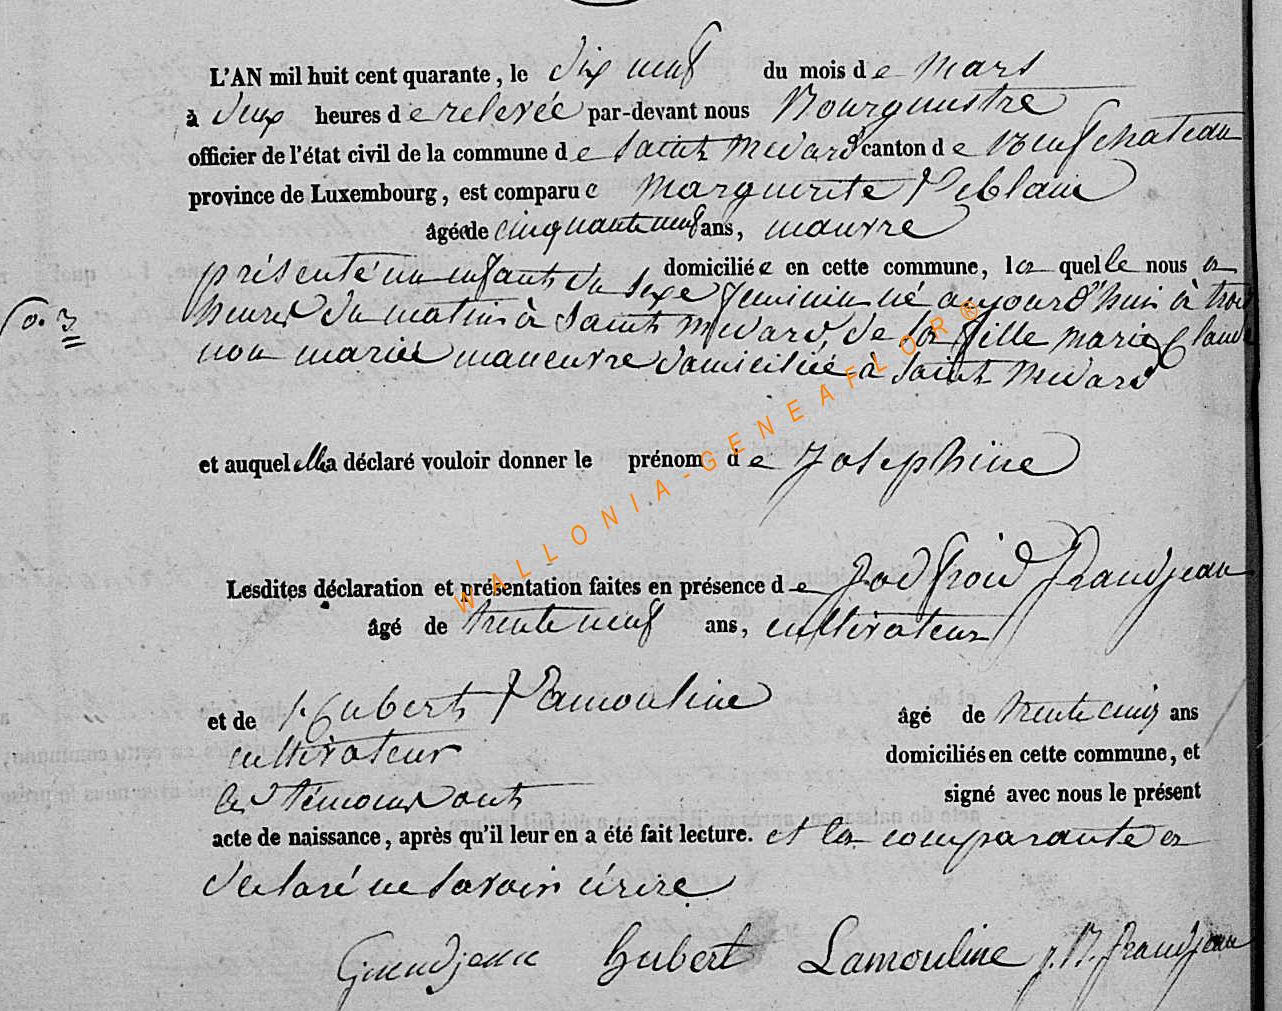 L'AN mil huit cent quarante, le dix neuf du mois de mars
à deux heures de relevée par-devant nous Bourgmestre
officier de l'état civil de la commune de Saint Medard canton de neufchateau
province de Luxembourg, est comparue Marguerite
âgée de cinquante neuf ans, mauvre
domiciliée en cette commune, la quelle nous a
présenté un enfant du sexe feminin né aujourd'hui à trois
heures du matin à Saint Medard, de la fille marie
non mariée maneuvre domiciliée à Saint Medard
No. 3
et auquel elle a déclaré vouloir donner le prénom de Josephine
Lesdites déclaration et présentation faites en présence de Godfroid Grandjean
âgé de trente neuf ans, cultivateur
et de Hubert Lamouline âgé de trente cinq ans
cultivateur domiciliés en cette commune, et
les témoins ont signé avec nous le présent
acte de naissance, après qu'il leur en a été fait lecture. et la comparante a
declaré ne savoir écrire
Grandjean Hubert Lamouline J. B. Grandjean
WALLONIA-GENEAFLOR®